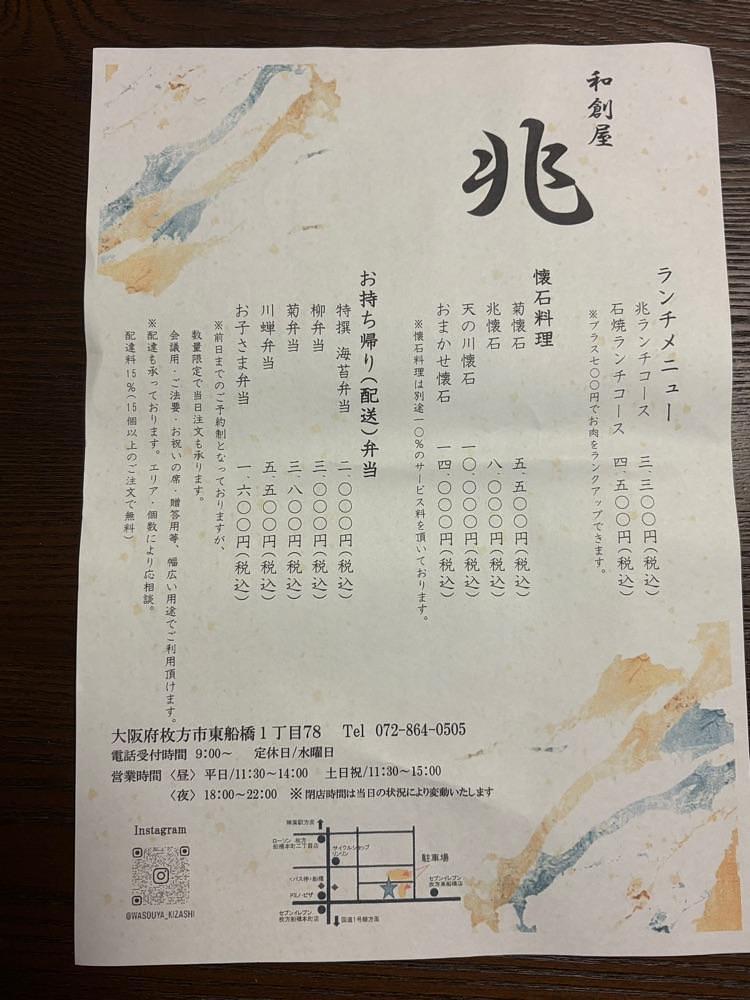 和創屋
兆
ランチメニュー
兆ランチコース 三、三〇〇円(税込)
石焼ランチコース 四、五〇〇円(税込)
※プラス七〇〇円でお肉をランクアップできます。
懐石料理
菊懐石 五、五〇〇円(税込)
兆懐石 八、〇〇〇円(税込)
天の川懐石 一〇、〇〇〇円(税込)
おまかせ懐石 一四、〇〇〇円(税込)
※懐石料理は別途一〇%のサービス料を頂いております。
お持ち帰り(配送)弁当
特撰 海苔弁当 二、〇〇〇円(税込)
柳弁当 三、〇〇〇円(税込)
菊弁当 三、八〇〇円(税込)
川蝉弁当 五、五〇〇円(税込)
お子さま弁当 一、六〇〇円(税込)
※前日までのご予約制となっておりますが、
数量限定で当日注文も承ります。
会議用・ご法要・お祝いの席・贈答用等、幅広い用途でご利用頂けます。
※配達も承っております。エリア・個数により応相談。
配達料15%(15個以上のご注文で無料)
大阪府枚方市東船橋1丁目78 Tel 072-864-0505
電話受付時間 9:00～ 定休日/水曜日
営業時間〈昼〉平日/11:30～14:00 土日祝/11:30～15:00
〈夜〉18:00～22:00 ※閉店時間は当日の状況により変動いたします
Instagram
@WASOUYA_KIZASHI
樟葉駅方面
ローソン 枚方
船橋本町二丁目店
サイクルショップ
リンリン
駐車場
<バス停>船橋
ドミノ・ピザ
セブンイレブン
枚方東船橋店
セブンイレブン
枚方船橋本町店
国道1号線方面